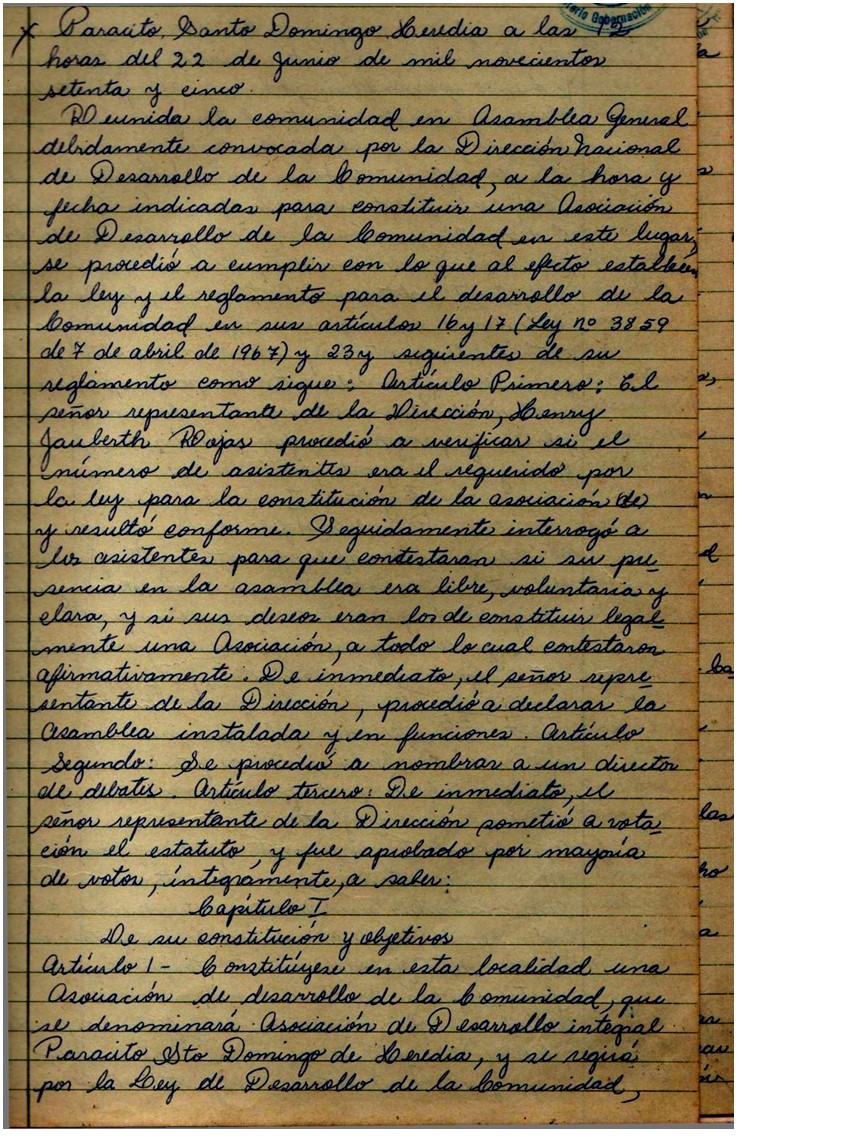 Paracito, Santo Domingo, Heredia a las 15
horas del 22 de Junio de mil novecientos
setenta y cinco.
Reunida la comunidad en Asamblea General
debidamente convocada por la Dirección Nacional
de Desarrollo de la Comunidad, a la hora y
fecha indicadas para constituir una Asociación
de Desarrollo de la Comunidad en este lugar,
se procedió a cumplir con lo que al efecto establecen
la ley y el reglamento para el desarrollo de la
Comunidad en sus artículos 16 y 17 (Ley nº 3859
de 7 de abril de 1967) y 23 y siguientes de su
reglamento como sigue: Artículo Primero: El
señor representante de la Dirección, Henry
Jauberth Rojas procedió a verificar si el
número de asistentes era el requerido por
la ley para la constitución de la asociación (de)
y resultó conforme. Seguidamente interrogó a
los asistentes para que contestaran si su pre_
sencia en la asamblea era libre, voluntaria y
clara, y si sus deseos eran los de constituir legal_
mente una Asociación, a todo lo cual contestaron
afirmativamente. De inmediato, el señor repre_
sentante de la Dirección, procedió a declarar la
Asamblea instalada y en funciones. Artículo
Segundo: Se procedió a nombrar a un director
de debates. Artículo tercero: De inmediato, el
señor representante de la Dirección sometió a vota_
ción el estatuto, y fue aprobado por mayoría
de votos, íntegramente, a saber:
Capítulo I
De su constitución y objetivos
Artículo 1 - Constitúyese en esta localidad una
Asociación de desarrollo de la Comunidad, que
se denominará Asociación de Desarrollo integral
Paracito Sto Domingo de Heredia, y se regirá
por la Ley de Desarrollo de la Comunidad,